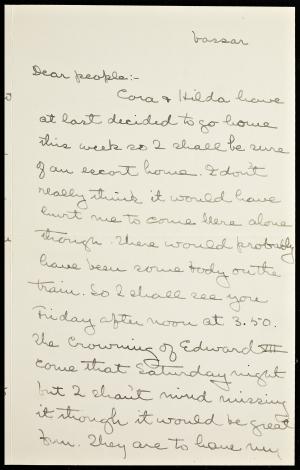 Vassar
Dear people:-
Cora & Hilda have
at last decided to go home
this week so I shall be sure
of an escort home. I don't
really think it would have
hurt me to come here alone
though. There would probably
have been some body on the
train. So I shall see you
Friday after noon at 3.50.
The Crowning of Edward VII
come that Saturday night
but I shan't mind missing
it though it would be great
fun. They are to have my